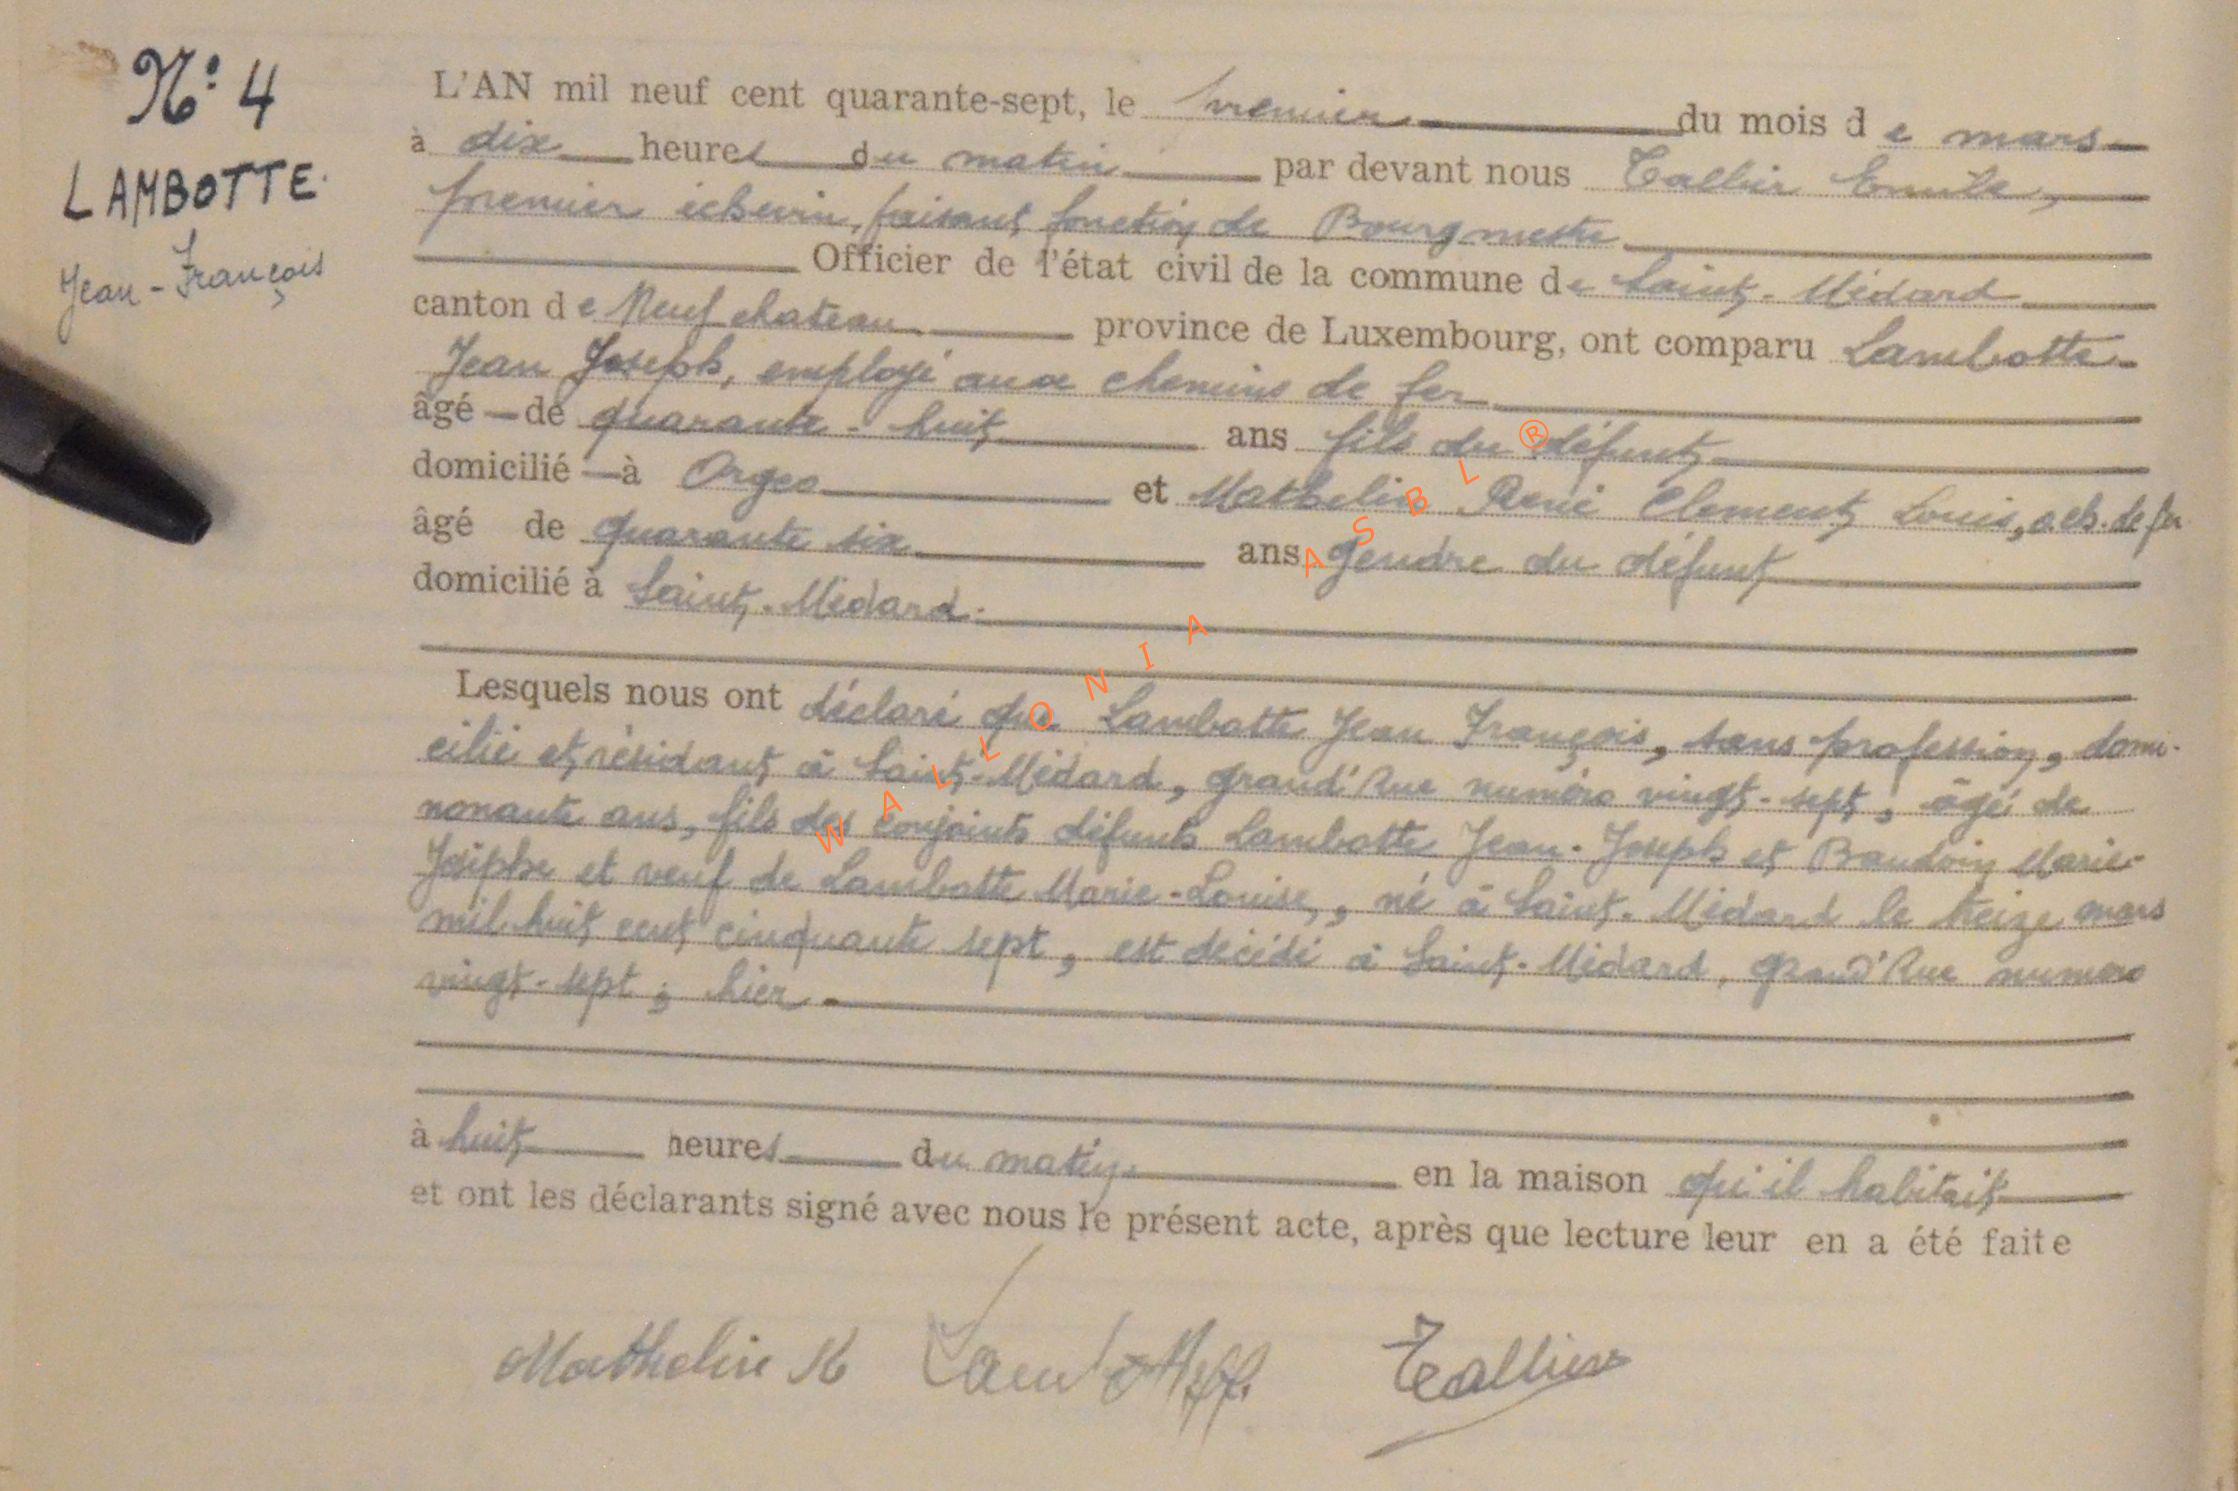 N° 4
LAMBOTTE.
Jean-François
L'AN mil neuf cent quarante-sept, le premier du mois de mars
à dix heures du matin par devant nous Tallier Emile,
premier échevin, faisant fonction de Bourgmestre
Officier de l'état civil de la commune de Saint-Médard
canton de Neufchateau province de Luxembourg, ont comparu Lambotte
Jean Joseph, employé aux chemins de fer
âgé de quarante-huit ans fils du défunt
domicilié à Orgeo et Mathelin René Clement Louis, o. ch. de fer
âgé de quarante six ans gendre du défunt
domicilié à Saint-Médard.
Lesquels nous ont déclaré que Lambotte Jean François, sans profession, domi-
cilié et résidant à Saint-Médard, grand'Rue numéro vingt-sept, âgé de
nonante ans, fils des conjoints défunts Lambotte Jean-Joseph et Baudoin Marie-
Josèphe et veuf de Lambotte Marie-Louise, né à Saint-Médard le treize mars
mil huit cent cinquante sept, est décédé à Saint-Médard, grand'Rue numéro
vingt-sept; hier
à huit heures du matin en la maison qu'il habitait
et ont les déclarants signé avec nous le présent acte, après que lecture leur en a été faite
Mathelin R Lambotte JJ. Tallier
WALLONIA ASBL ®